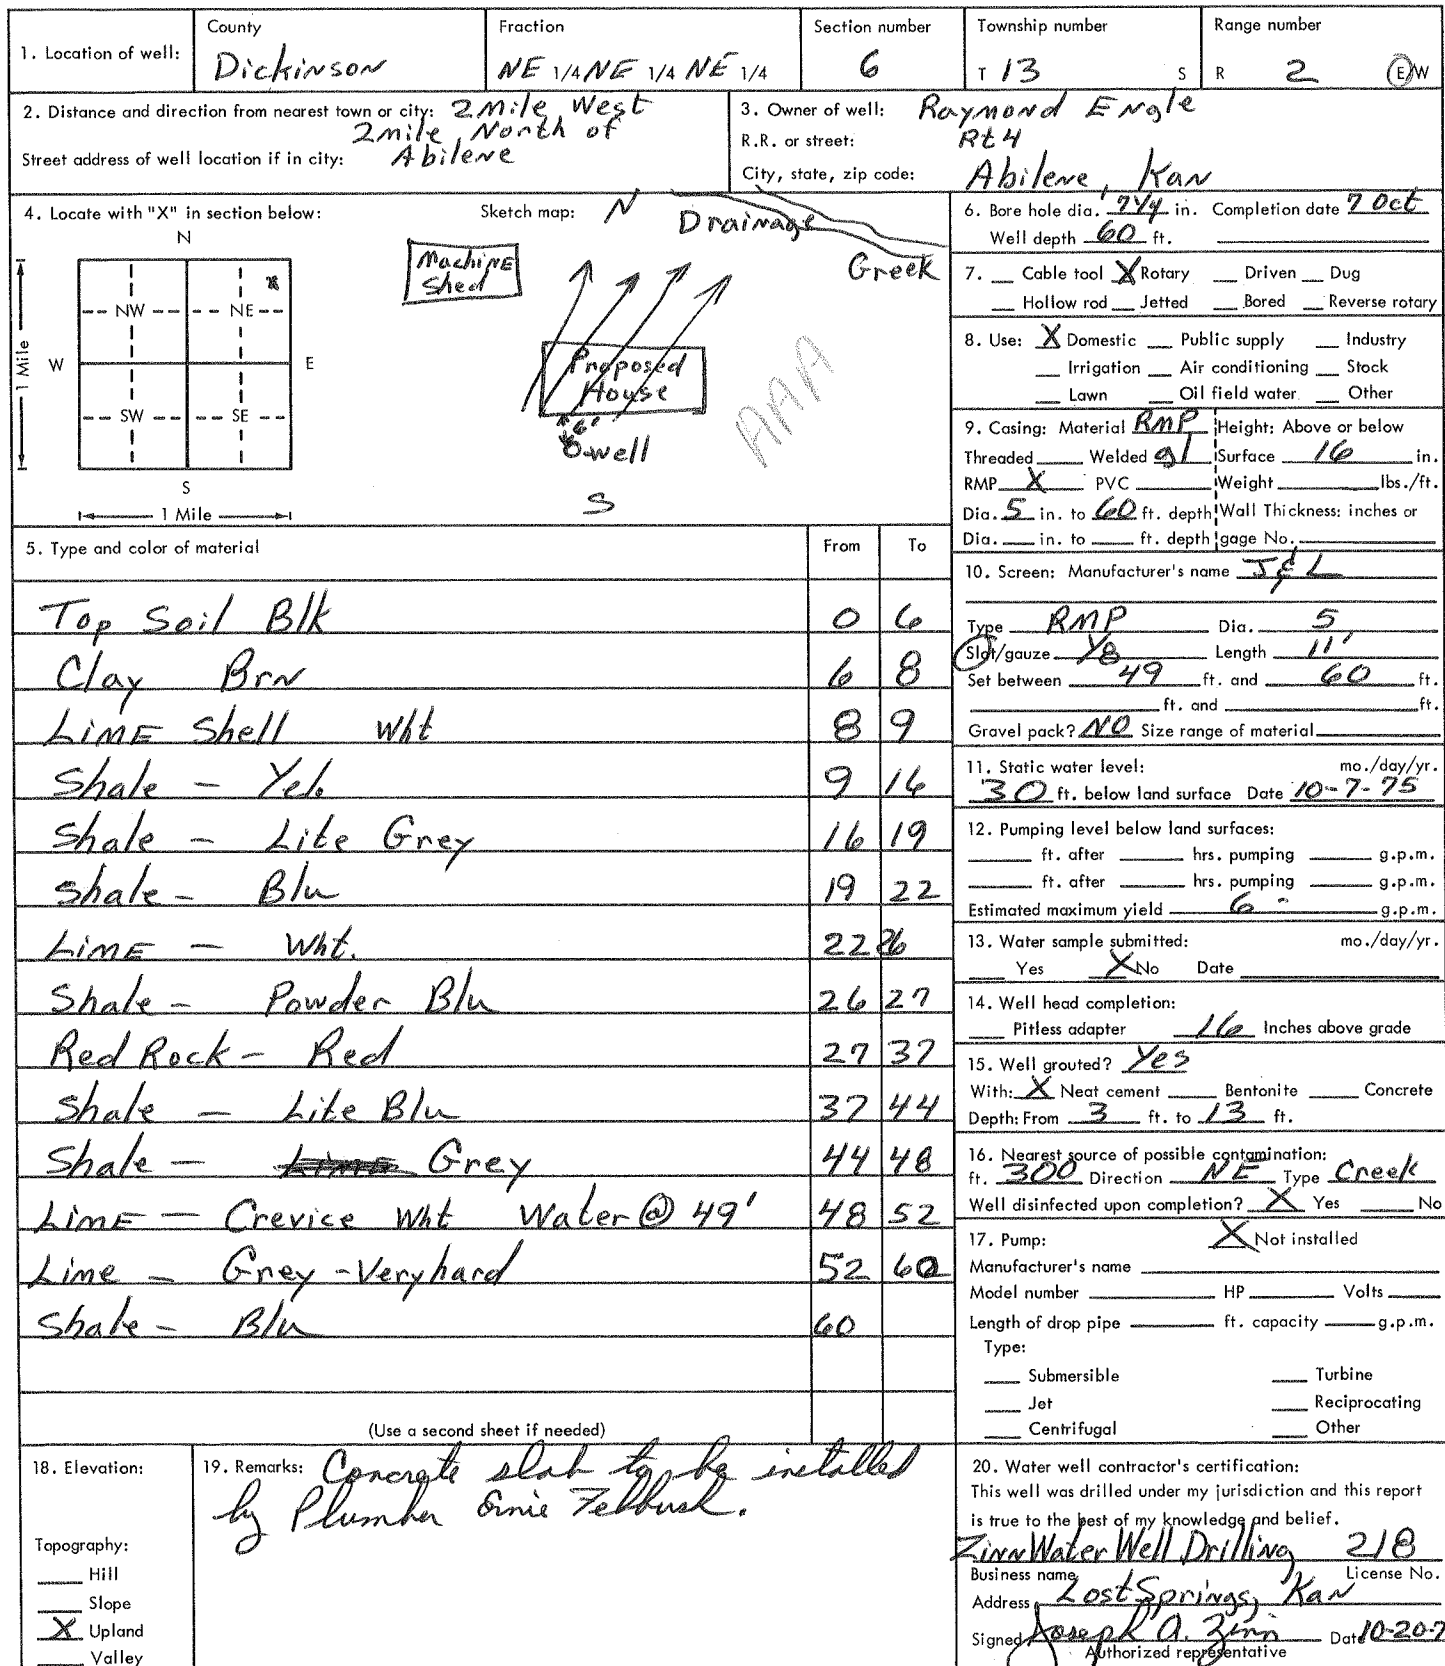 1. Location of well: County Dickinson Fraction NE 1/4 NE 1/4 NE 1/4 Section number 6 Township number T 13 S Range number R 2 E/W
2. Distance and direction from nearest town or city: 2 Mile West
2 mile North of
Street address of well location if in city: Abilene
3. Owner of well: Raymond Engle
R.R. or street: Rt 4
City, state, zip code: Abilene, Kan
4. Locate with "X" in section below:
N
NW NE
W E
SW SE
S
1 Mile
1 Mile
X
Sketch map: N
Drainage
Creek
Machine
Shed
Proposed
House
6'
O-well
S
AAA
5. Type and color of material From To
Top Soil Blk 0 6
Clay Brn 6 8
Lime Shell Wht 8 9
Shale - Yel. 9 16
Shale - Lite Grey 16 19
Shale - Blu 19 22
Lime - Wht. 22 26
Shale - Powder Blu 26 27
Red Rock - Red 27 37
Shale - Lite Blu 37 44
Shale - Grey 44 48
Lime - Crevice Wht Water @ 49' 48 52
Lime - Grey - Very hard 52 60
Shale - Blu 60
(Use a second sheet if needed)
6. Bore hole dia. 7 1/4 in. Completion date 7 Oct
Well depth 60 ft.
7. Cable tool X Rotary Driven Dug
Hollow rod Jetted Bored Reverse rotary
8. Use: X Domestic Public supply Industry
Irrigation Air conditioning Stock
Lawn Oil field water Other
9. Casing: Material RMP Height: Above or below
Threaded Welded gl Surface 16 in.
RMP X PVC Weight lbs./ft.
Dia. 5 in. to 60 ft. depth Wall Thickness: inches or
Dia. in. to ft. depth gage No.
10. Screen: Manufacturer's name J & L
Type RMP Dia. 5
Slot/gauze 1/8 Length 11'
Set between 49 ft. and 60 ft.
ft. and ft.
Gravel pack? NO Size range of material
11. Static water level: mo./day/yr.
30 ft. below land surface Date 10-7-75
12. Pumping level below land surfaces:
ft. after hrs. pumping g.p.m.
ft. after hrs. pumping g.p.m.
Estimated maximum yield 6 g.p.m.
13. Water sample submitted: mo./day/yr.
Yes X No Date
14. Well head completion:
Pitless adapter 16 Inches above grade
15. Well grouted? Yes
With: X Neat cement Bentonite Concrete
Depth: From 3 ft. to 13 ft.
16. Nearest source of possible contamination:
ft. 300 Direction NE Type Creek
Well disinfected upon completion? X Yes No
17. Pump: X Not installed
Manufacturer's name
Model number HP Volts
Length of drop pipe ft. capacity g.p.m.
Type:
Submersible Turbine
Jet Reciprocating
Centrifugal Other
18. Elevation:
Topography:
Hill
Slope
X Upland
Valley
19. Remarks: Concrete slab to be installed
by Plumber Ernie
20. Water well contractor's certification:
This well was drilled under my jurisdiction and this report
is true to the best of my knowledge and belief.
Zinn Water Well Drilling 218
Business name License No.
Address Lost Springs, Kan
Signed Joseph A. Zinn Date 10-20-7
Authorized representative